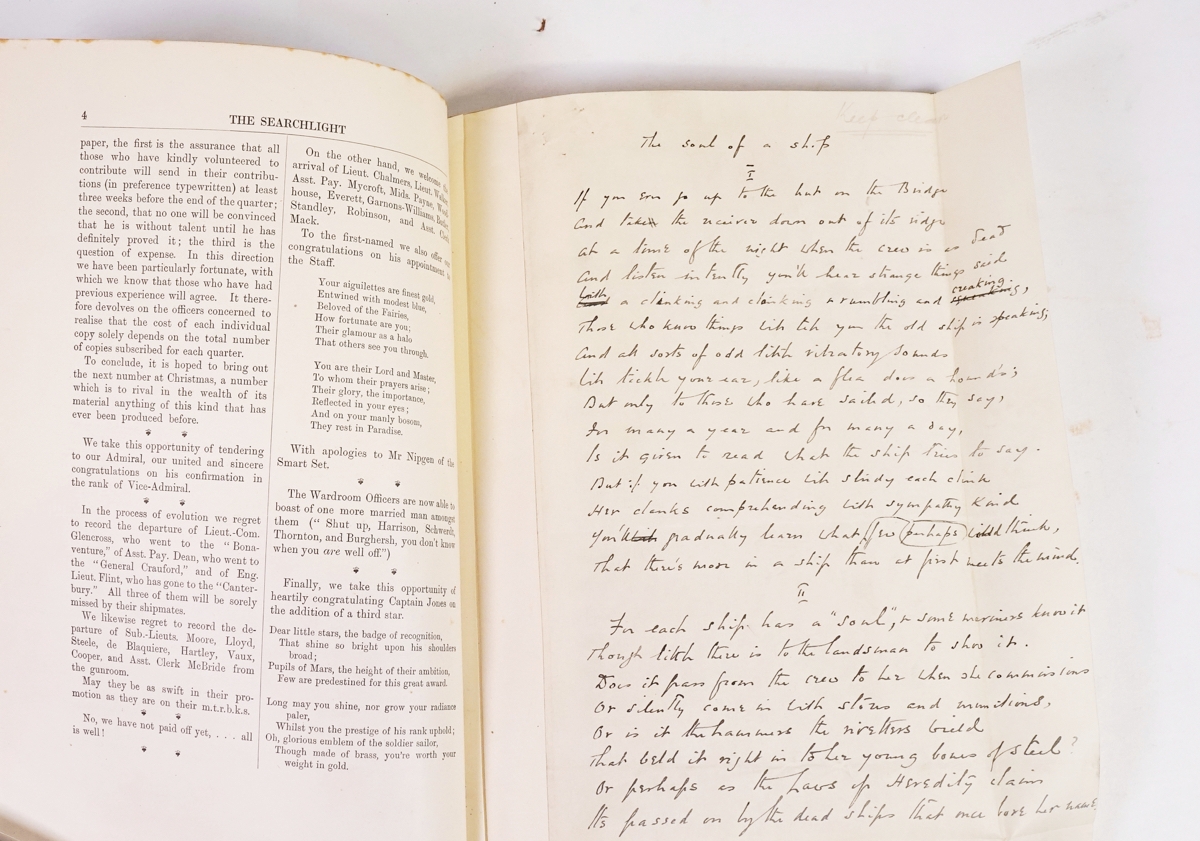 4
THE SEARCHLIGHT
paper, the first is the assurance that all
those who have kindly volunteered to
contribute will send in their contribu-
tions (in preference typewritten) at least
three weeks before the end of the quarter;
the second, that no one will be convinced
that he is without talent until he has
definitely proved it; the third is the
question of expense. In this direction
we have been particularly fortunate, with
which we know that those who have had
previous experience will agree. It there-
fore devolves on the officers concerned to
realise that the cost of each individual
copy solely depends on the total number
of copies subscribed for each quarter.
To conclude, it is hoped to bring out
the next number at Christmas, a number
which is to rival in the wealth of its
material anything of this kind that has
ever been produced before.
We take this opportunity of tendering
to our Admiral, our united and sincere
congratulations on his confirmation in
the rank of Vice-Admiral.
In the process of evolution we regret
to record the departure of Lieut.-Com.
Glencross, who went to the "Bona-
venture," of Asst. Pay. Dean, who went to
the "General Craufurd," and of Eng.
Lieut. Flint, who has gone to the "Canter-
bury." All three of them will be sorely
missed by their shipmates.
We likewise regret to record the de-
parture of Sub.-Lieuts. Moore, Lloyd,
Steele, de Blaquiere, Hartley, Vaux,
Cooper, and Asst. Clerk McBride from
the gunroom.
May they be as swift in their pro-
motion as they are on their m.t.r.b.k.s.
No, we have not paid off yet, . . . all
is well!
On the other hand, we welcome the
arrival of Lieut. Chalmers, Lieut.
Asst. Pay. Mycroft, Mids. Payne,
house, Everett, Garnons-Williams,
Standley, Robinson, and Asst.
Mack.
To the first-named we also offer our
congratulations on his appointment to
the Staff.
Your aiguilettes are finest gold,
Entwined with modest blue,
Beloved of the Fairies,
How fortunate are you;
Their glamour as a halo
That others see you through.
You are their Lord and Master,
To whom their prayers arise;
Their glory, the importance,
Reflected in your eyes;
And on your manly bosom,
They rest in Paradise.
With apologies to Mr Nipgen of the
Smart Set.
The Wardroom Officers are now able to
boast of one more married man amongst
them ("Shut up, Harrison, Schwerdt,
Thornton, and Burghersh, you don't know
when you are well off.")
Finally, we take this opportunity of
heartily congratulating Captain Jones on
the addition of a third star.
Dear little stars, the badge of recognition,
That shine so bright upon his shoulders
broad;
Pupils of Mars, the height of their ambition,
Few are predestined for this great award.
Long may you shine, nor grow your radiance
paler,
Whilst you the prestige of his rank uphold;
Oh, glorious emblem of the soldier sailor,
Though made of brass, you're worth your
weight in gold.
Keep clear
The soul of a ship
I
If you ever go up to the hut on the Bridge
And take the receiver down out of its ridge
At a time of the night when the crew is as dead
And listen intently you'll hear strange things said
with a clanking and clinking & rumbling and creaking,
Those who know things will tell you the old ship is speaking;
And all sorts of odd little vibratory sounds
Will tickle your ear, like a flea does a hound's;
But only to those who have sailed, so they say,
For many a year and for many a day,
Is it given to read what the ship tries to say.
But if you with patience will study each clink
Her clanks comprehending with sympathy kind
You'll gradually learn what few perhaps would think,
That there's more in a ship than at first meets the mind.
II
For each ship has a "soul", & some mariners know it
Though little there is to the landsman to show it.
Does it pass from the crew to her when she commissions
Or silently come in with stores and munitions,
Or is it the hammers the rivetters wield
That weld it right in to her young bones of steel?
Or perhaps as the Laws of Heredity claim
Its passed on by the dead ships that once bore her name